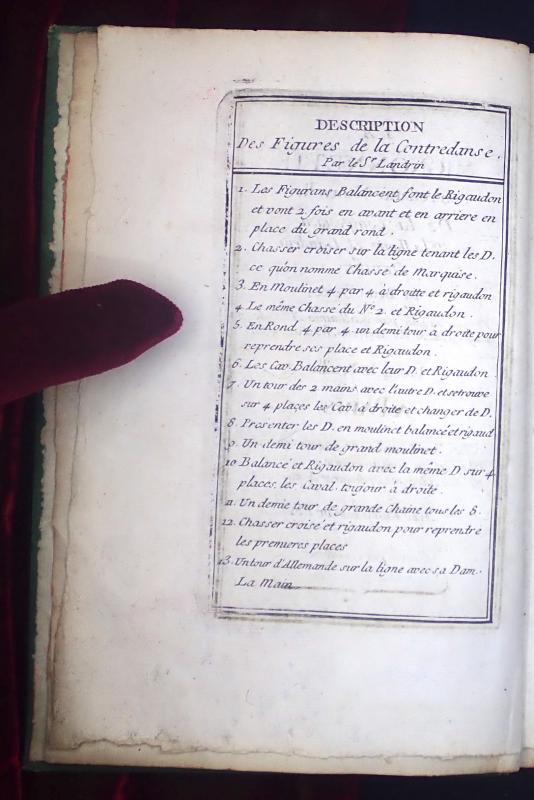 DESCRIPTION
Des Figures de la Contredanse.
Par le Sr. Landrin
1. Les Figurans Balancent font le Rigaudon
et vont 2 fois en avant et en arriere en
place du grand rond.
2. Chasser croiser sur la ligne tenant les D.
ce qu'on nomme Chassé de Marquise.
3. En Moulinet 4 par 4 à droitte et rigaudon
4. Le même Chassé du No. 2. et Rigaudon.
5. En Rond 4 par 4 un demi tour à droite pour
reprendre ses place et Rigaudon.
6. Les Cav. Balancent avec leur D. et Rigaudon
7. Un tour des 2 mains avec l'autre D. et se trouve
sur 4 plaçes les Cav. à droite et changer de D.
8. Presenter les D. en moulinet balancé et rigaud
9. Un demi tour de grand moulinet.
10 Balancé et Rigaudon avec la même D sur 4
places les Caval. toujour à droite.
11. Un demie tour de grande Chaine tous les 8.
12. Chasser croisé et rigaudon pour reprendre
les premieres places
13. Un tour d'Allemande sur la ligne avec sa Dam.
La Main